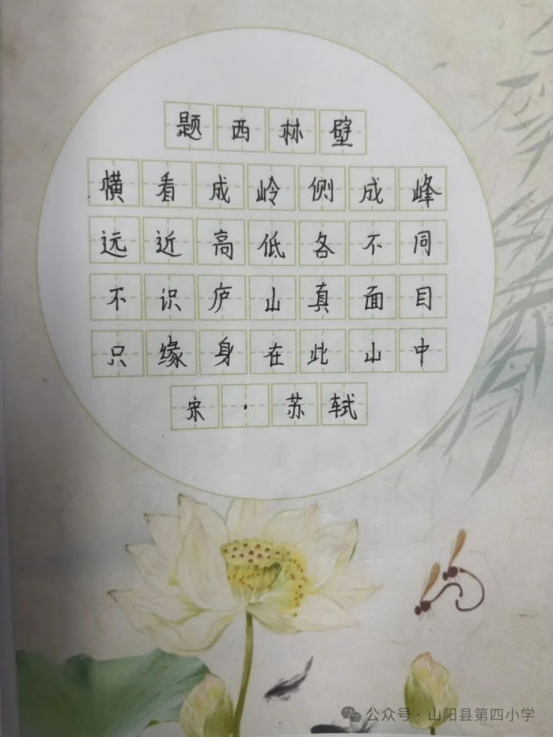 题西林壁
横看成岭侧成峰
远近高低各不同
不识庐山真面目
只缘身在此山中
宋·苏轼
公众号·山阳县第四小学